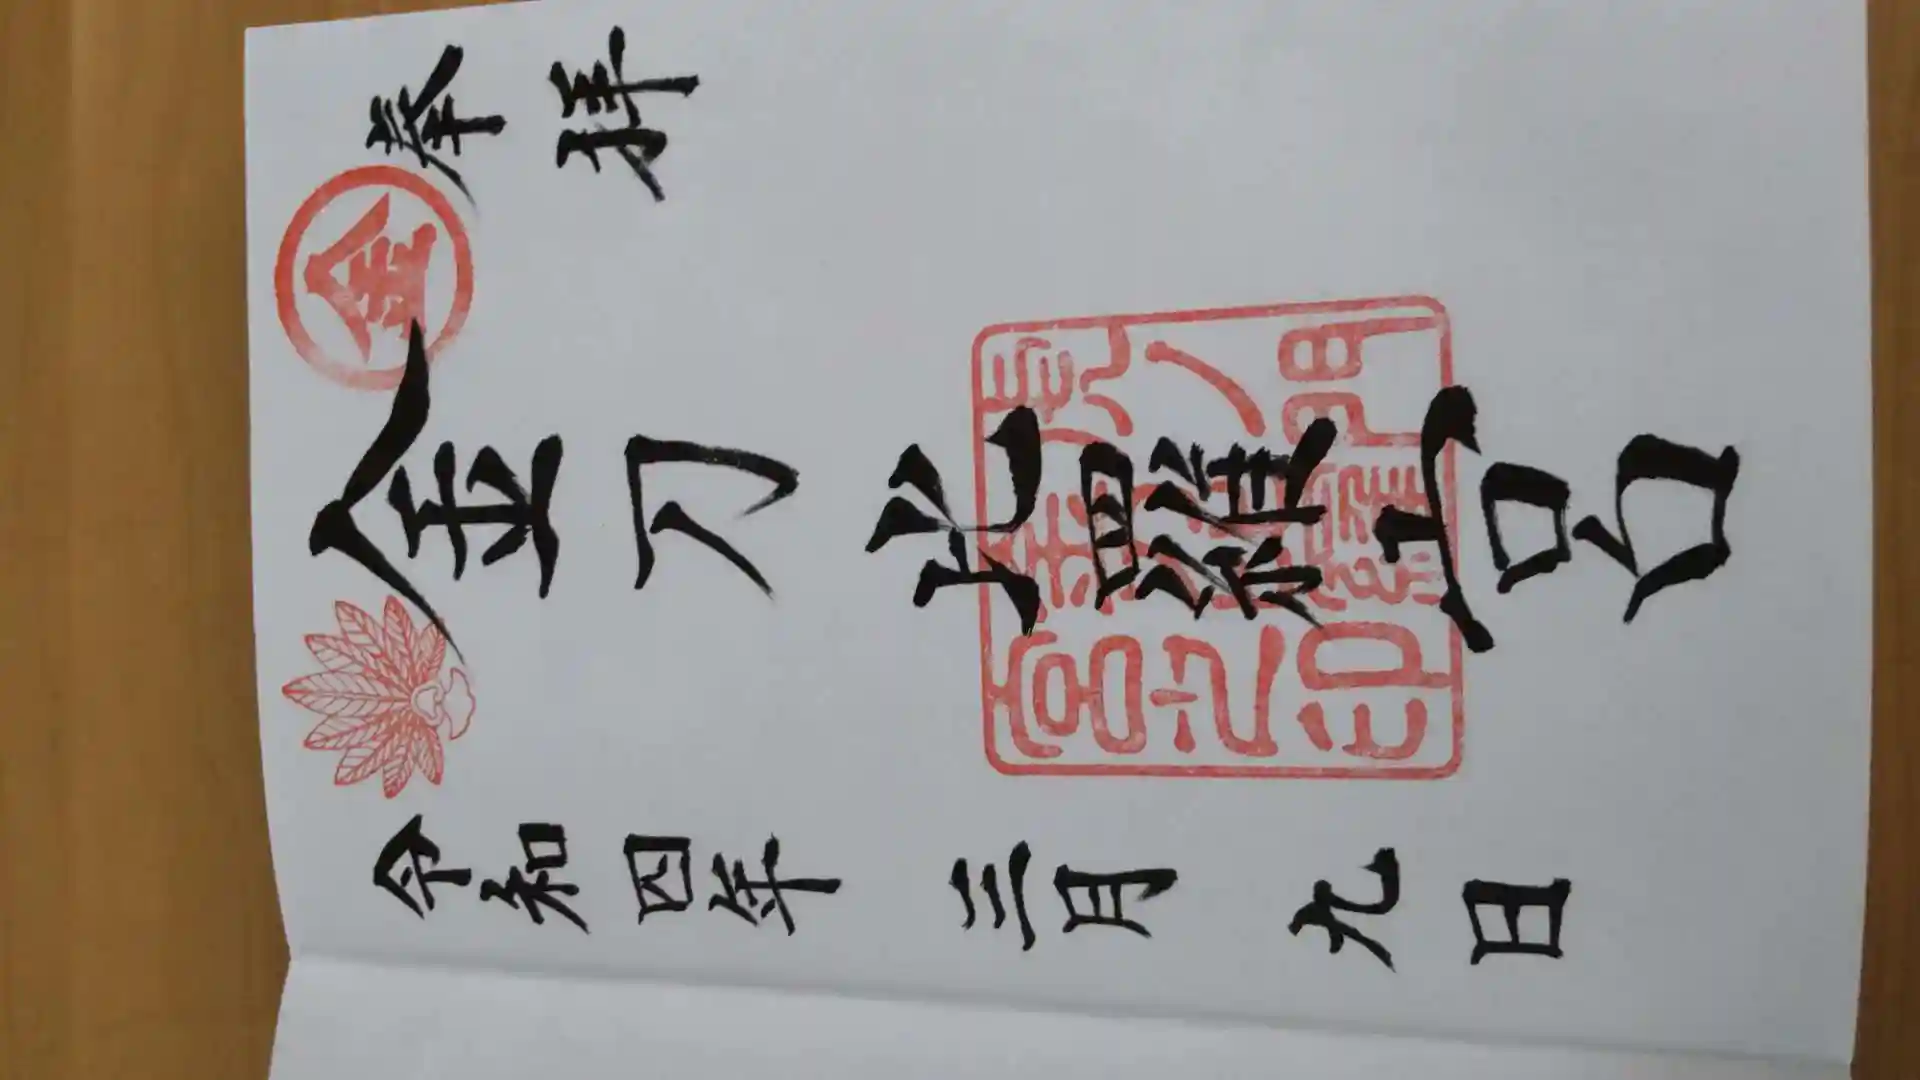 奉拝
金
金刀比羅宮
令和四年三月九日